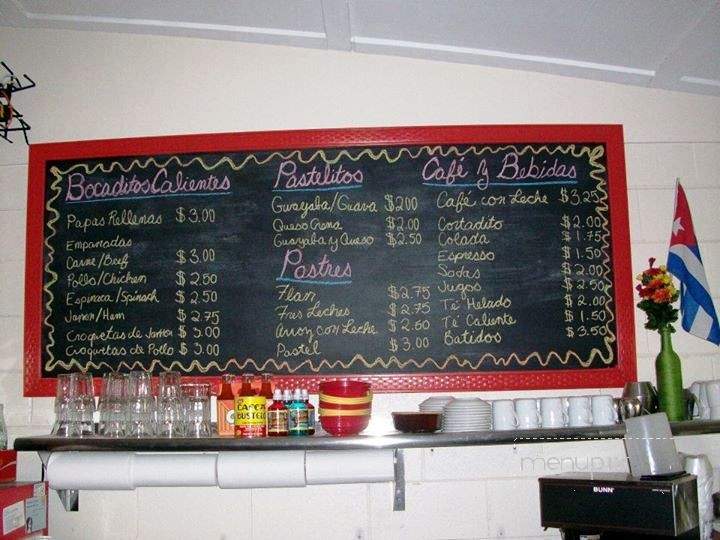 Bocaditos Calientes
Papas Rellenas $3.00
Empanadas
Carne/Beef $3.00
Pollo/Chicken $2.50
Espinaca/Spinach $2.50
Jamon/Ham $2.75
Croquetas de Jamon $3.00
Croquetas de Pollo $3.00
Pastelitos
Guayaba/Guava $2.00
Queso Crema $2.00
Guayaba y Queso $2.50
Pastres
Flan $2.75
Tres Leches $2.75
Arroz con Leche $2.60
Pastel $3.00
Café y Bebidas
Café con Leche $3.25
Cortadito $2.00
Colada $1.75
Espresso $1.50
Sodas $2.00
Jugos $2.50
Té Helado $2.00
Té Caliente $1.50
Batidos $3.50
CAFE
BUSTELO
BUNN
menupix